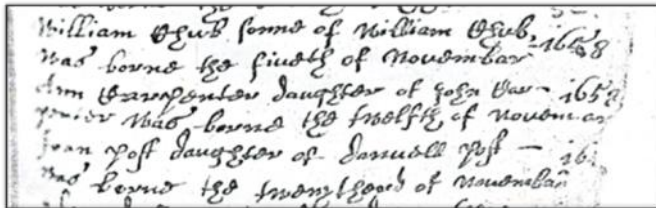 William Chub sonne of William Chub,
was borne the fiveth of November 1658
Ann Carpenter daughter of John Car- 1658
penter was borne the twelfth of Novem
Joan Post daughter of Danuell Post 16
was borne the of November